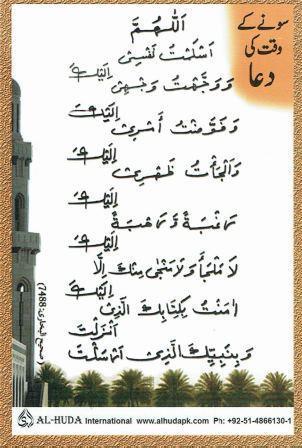 سونے کے
وقت کی
دعا
اَللّٰهُمَّ
اَسْلَمْتُ نَفْسِىْ
اِلَيْكَ
وَوَجَّهْتُ وَجْهِىْ
اِلَيْكَ
وَفَوَّضْتُ أَمْرِىْ
اِلَيْكَ
وَأَلْجَأْتُ ظَهْرِىْ
اِلَيْكَ
رَغْبَةً وَّ رَهْبَةً
اِلَيْكَ
لَا مَلْجَأَ وَلَا مَنْجٰى مِنْكَ اِلَّا
اِلَيْكَ
اٰمَنْتُ بِكِتَابِكَ الَّذِىْ
اَنْزَلْتَ
وَبِنَبِيِّكَ الَّذِىْ اَرْسَلْتَ
(صحيح البخارى:7488)
AL-HUDA International www.alhudapk.com Ph: +92-51-4866130-1